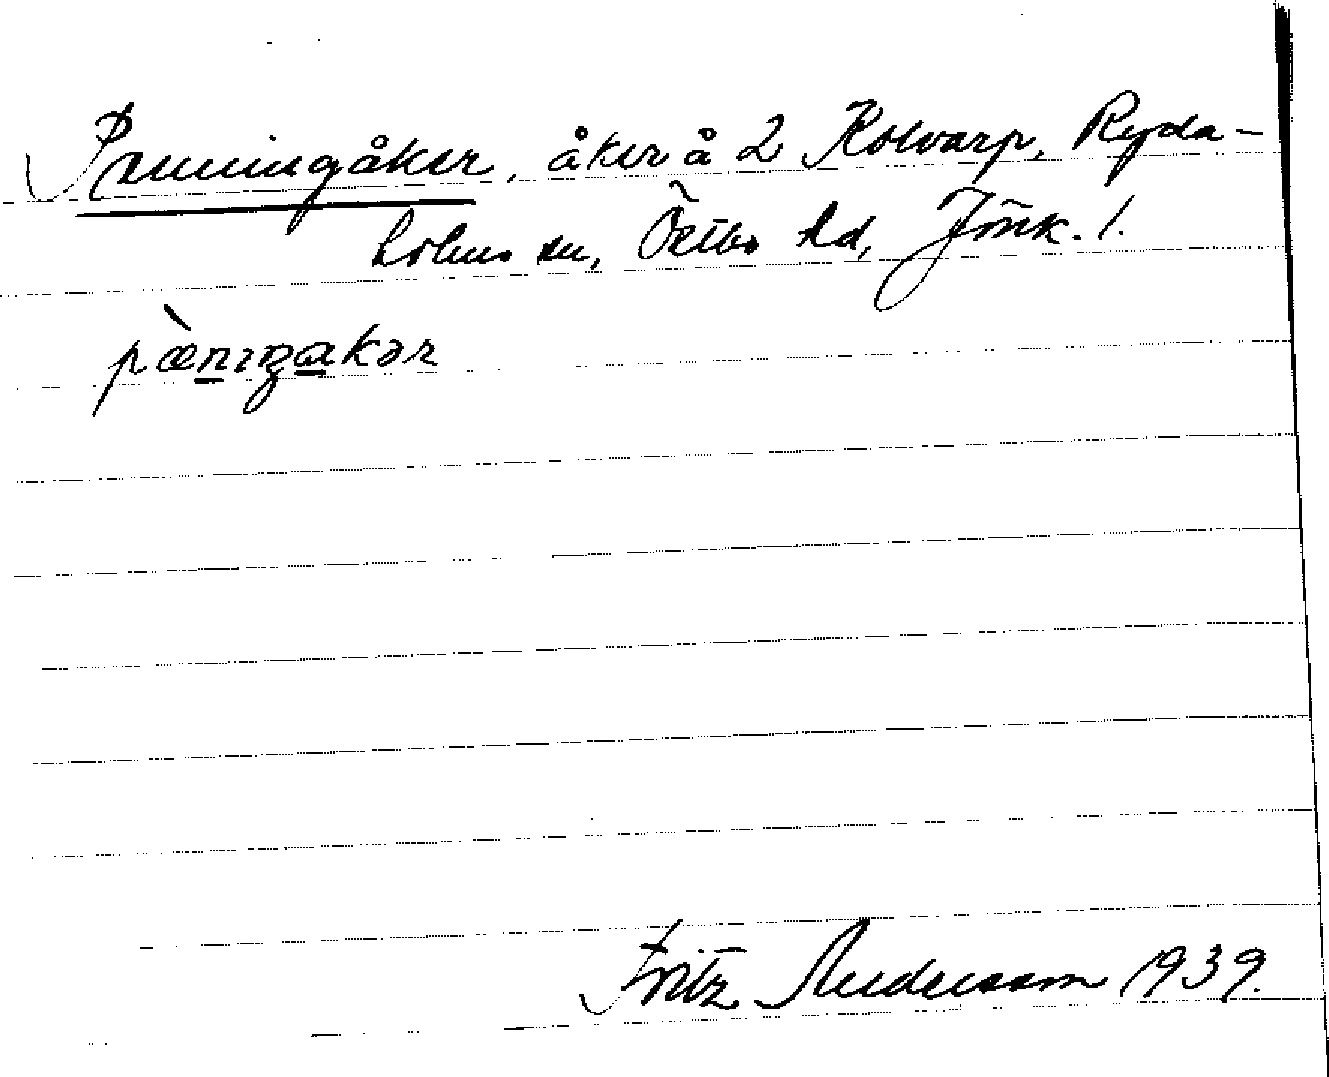 Penningåker, åker å 2 Kolvarp, Ryda-
holms sn, Östbo hd, Jönk. l.
pæ̀nıŋakər
Fritz Andersson 1939.